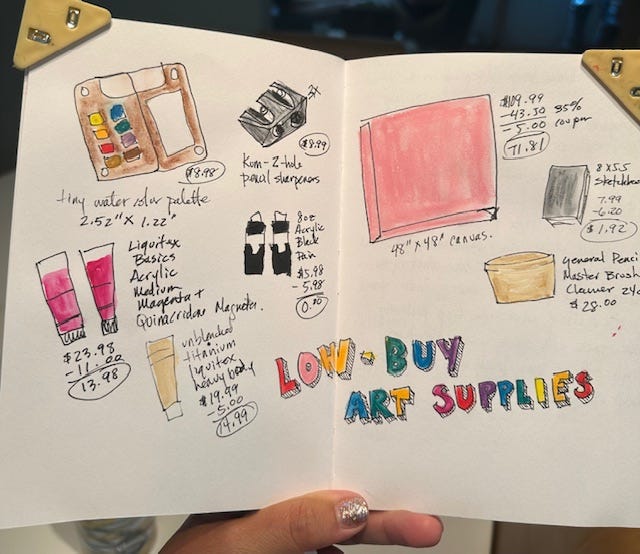 $8.98
tiny water color palette
2.52" x 1.22"
2x
$8.99
Kum-2-hole
pencil sharpeners
Liquitex
Basics
Acrylic
Medium
Magenta +
Quinacridone Magneta.
$23.98
-11.00
13.98
8oz
Acrylic
Black
Pain
$5.98
-5.98
0.00
unbleached
titanium
liquitex
heavy body
$19.99
-5.00
14.99
$109.99
-43.50
-5.00
71.81
35%
coupon
48" x 48" canvas.
8x5.5
Sketchboo
7.99
$1.92
general Penci
Master Brush
Cleaner 24o
$28.00
LOW-BUY
ART SUPPLIES